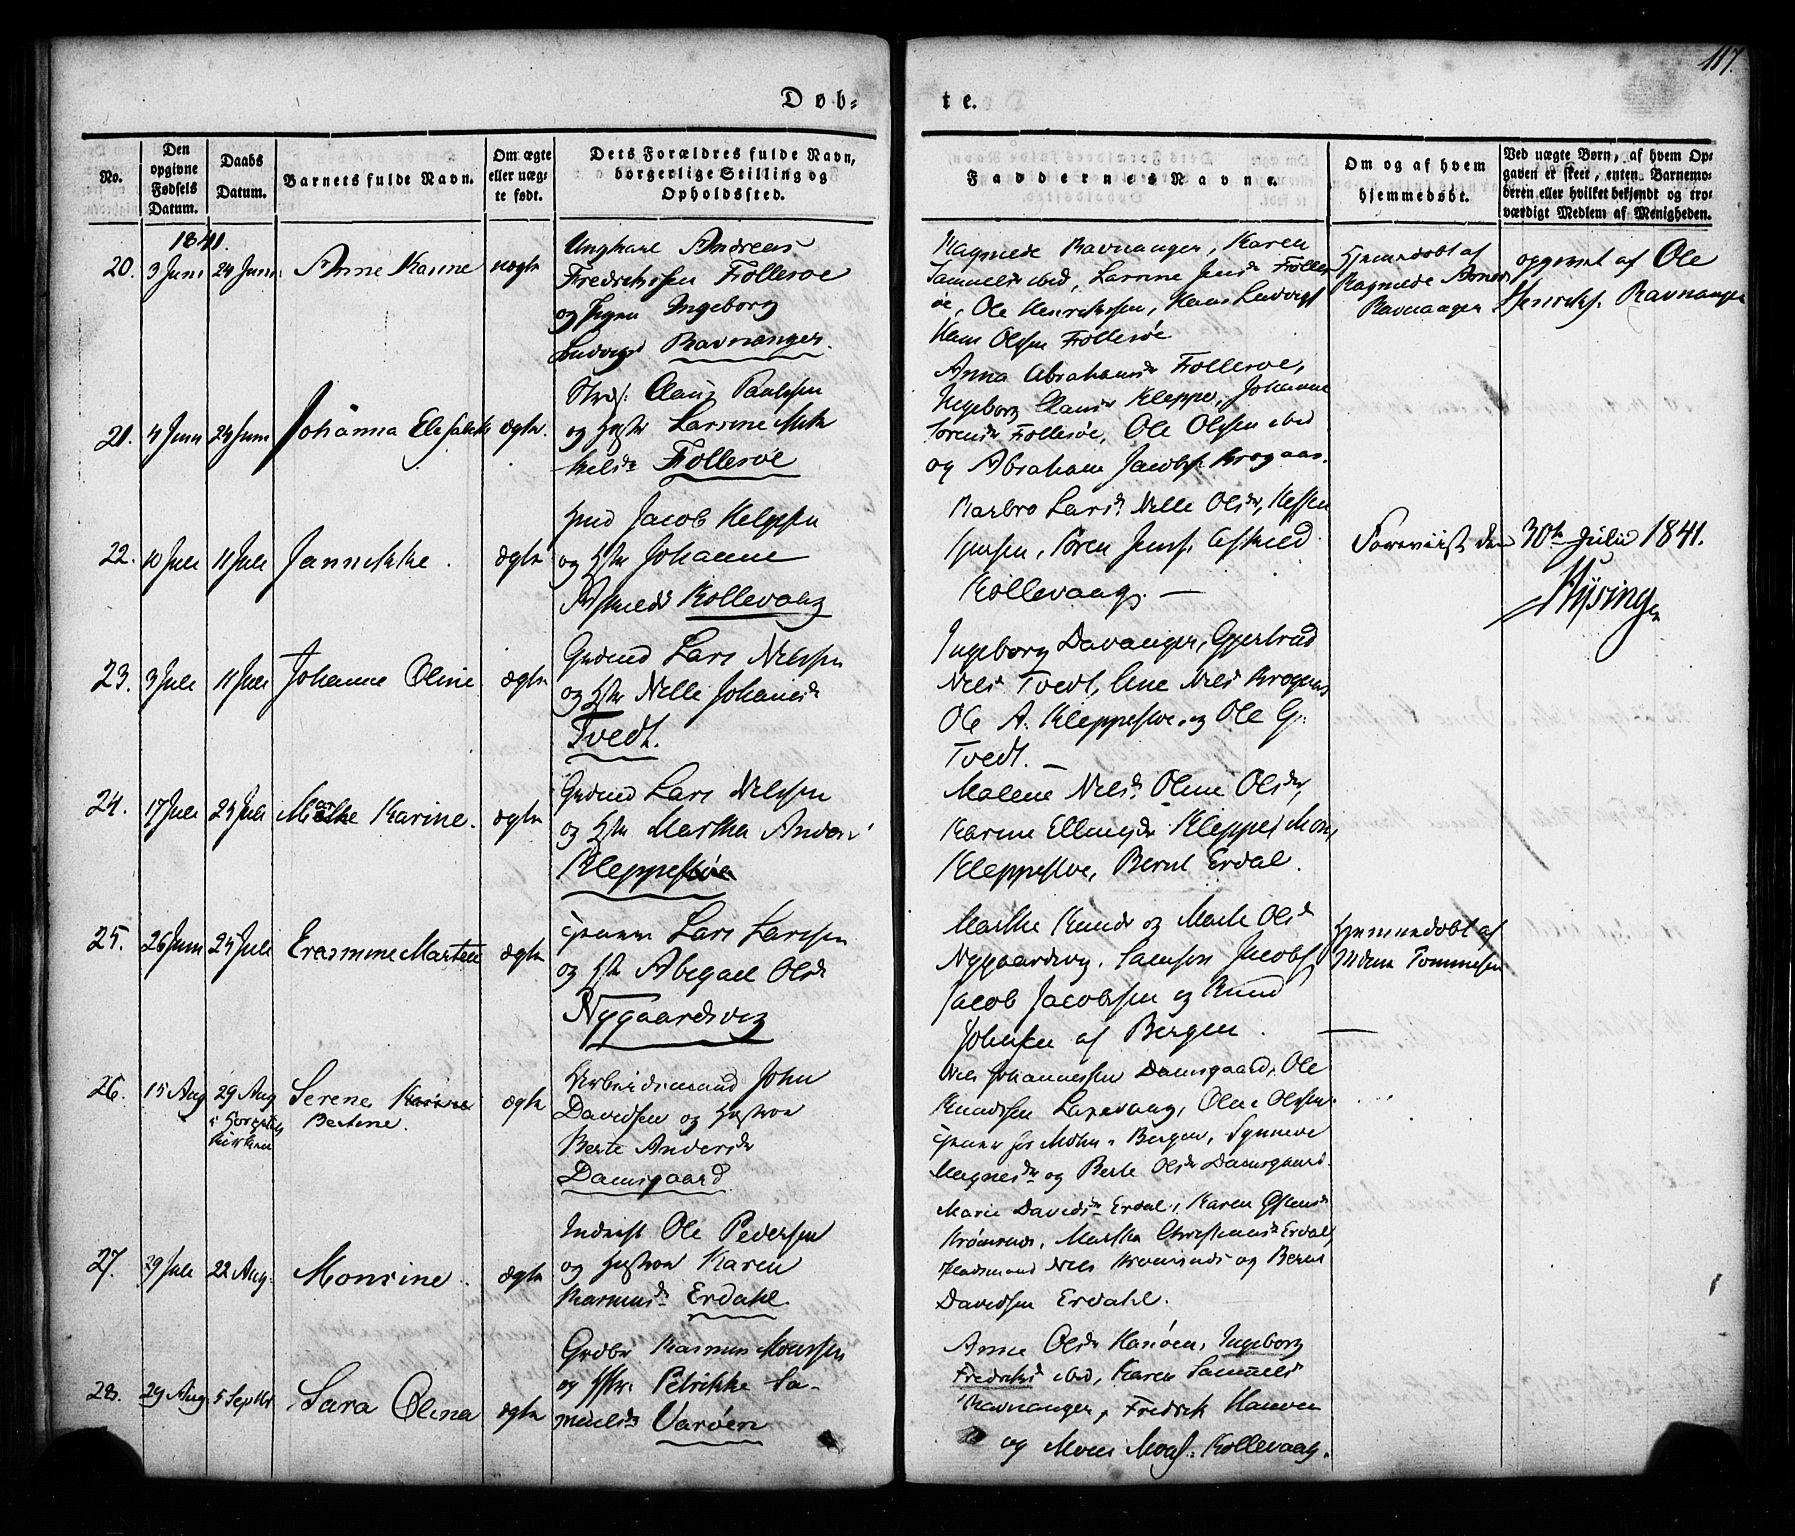 117.
Døb-
te.
No.
Den opgivne Fødsels Datum.
Daabs Datum.
Barnets fulde Navn.
Om ægte eller uægte født.
Dets Forældres fulde Navn, borgerlige Stilling og Opholdssted.
Faddernes Navne.
Om og af hvem hjemmedøbt.
Ved uægte Børn, af hvem Opgaven er skeet, enten Barnemoderen eller hvilket bekjendt og troværdigt Medlem af Menigheden.
1841.
20. 3 Juni 24 Juni Anne Karine uægte
Ungkarl Andreas
Fredriksen Follesøe
og Pigen Ingeborg
Ludvigsd Ravnanger.
Ragnilde Ravnanger, Karen
Samuelsd ibid, Larsine Jensd Folles
øe, Ole Henrikssen, Hans Ludvigs
Hans Olssen Follesøe
Hjemmedøbt af
Ragnilde
Ravnanger
opgivet af Ole
Henriks. Ravnanger
21. 4 Juni 24 Juni Johanna Elisabeth ægte.
Claus Paulssen
og Hstr Larsine Mik
kelsdr Follesøe
Anna Abrahamsd Follesøe,
Ingeborg Clausd Kleppe, Johanne
Sørensd Follesøe, Ole Olssen ibid
og Abraham Jacobs. Krogaas.
22. 10 Juli 11 Juli Jannikke. ægte
Jacob
og Hstr Johanne
Kollevaag
Barbro Larsdr Nille Olsdr,
Søren Jens. Eskild
Kollevaag. —
Foreviist den 30te Julii 1841.
23. 3 Juli 11 Juli Johanne Oline ægte
Grdmd Lars Nilssen
og Hstr Nille Johannesdr
Tvedt.
Ingeborg Davanger, Gjertrud
Nilsd Tvedt, Ane Nilsd Krogaas
Ole A. Kleppestøe og Ole G.
Tvedt. —
24. 17 Juli 25 Juli Marthe Karine. ægte
Grdmd Lars Nilssen
og Hstr Martha Anders
Kleppestøe
Malene Nilsdr Oline Olsdr,
Karine Ellingsdr Kleppe, Mons
Kleppestøe, Bernt Erdal.
25. 26 Juni 25 Juli Erasmine Martea ægte
Lars Larssen
og Hstr Abigael Olsdr
Nygaardsvig
Marthe Knudsd og Marte Olsdr
Nygaardsvig. Samson Jacobs,
Jacob Jacobssen og Knud
Johnsen af Bergen. —
Hjemmedøbt af
Tommesen
26. 15 Aug 29 Aug Serene Karine ægte
Bertine.
Kirken
Arbeidsmand John
Davidsen og Hustroe
Berte Andersdr
Damsgaard
Nils Johannessen Damsgaard, Ole
Knudssen Laxevaag, Oline Olssen
Bergen, Synneve
Magnesdr og Berte Olsdr Damsgaard.
27. 29 Juli 22 Aug. Monsine. ægte
Inderst Ole Pedersen
og Hustroe Karen
Rasmusdr Erdahl.
Marie Davidsdr Erdal, Karen
Martha Christensdr Erdal,
Nils og Bernt
Davidsen Erdahl.
28. 29 Aug. 5 Septbr Sara Olina ægte
Grdbr Rasmus Monssen
og Hstr. Petrikke Sa-
muelsdr Varøen
Anne Olsdr Hanøen, Ingeborg
Fredriksd ibid, Karen Samuelsd
Ravnanger, Fredrik Hanøen
og Mons Kollevaag.